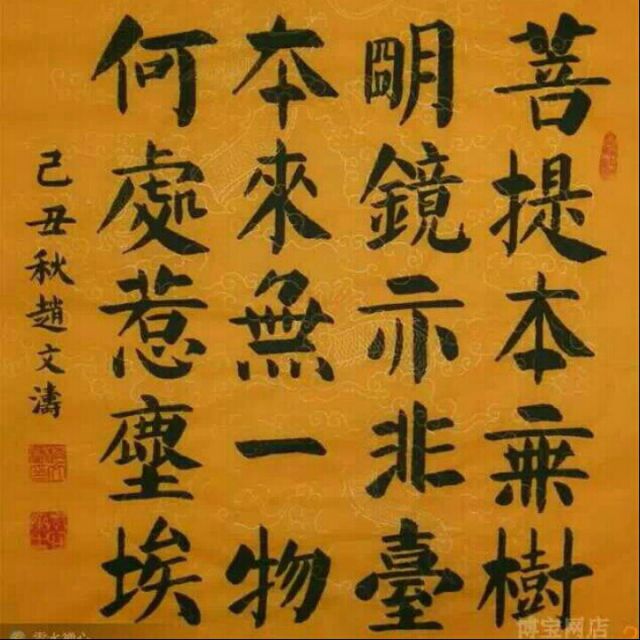 菩提本無樹
明鏡亦非臺
本來無一物
何處惹塵埃
己丑秋趙文濤
博宝网店